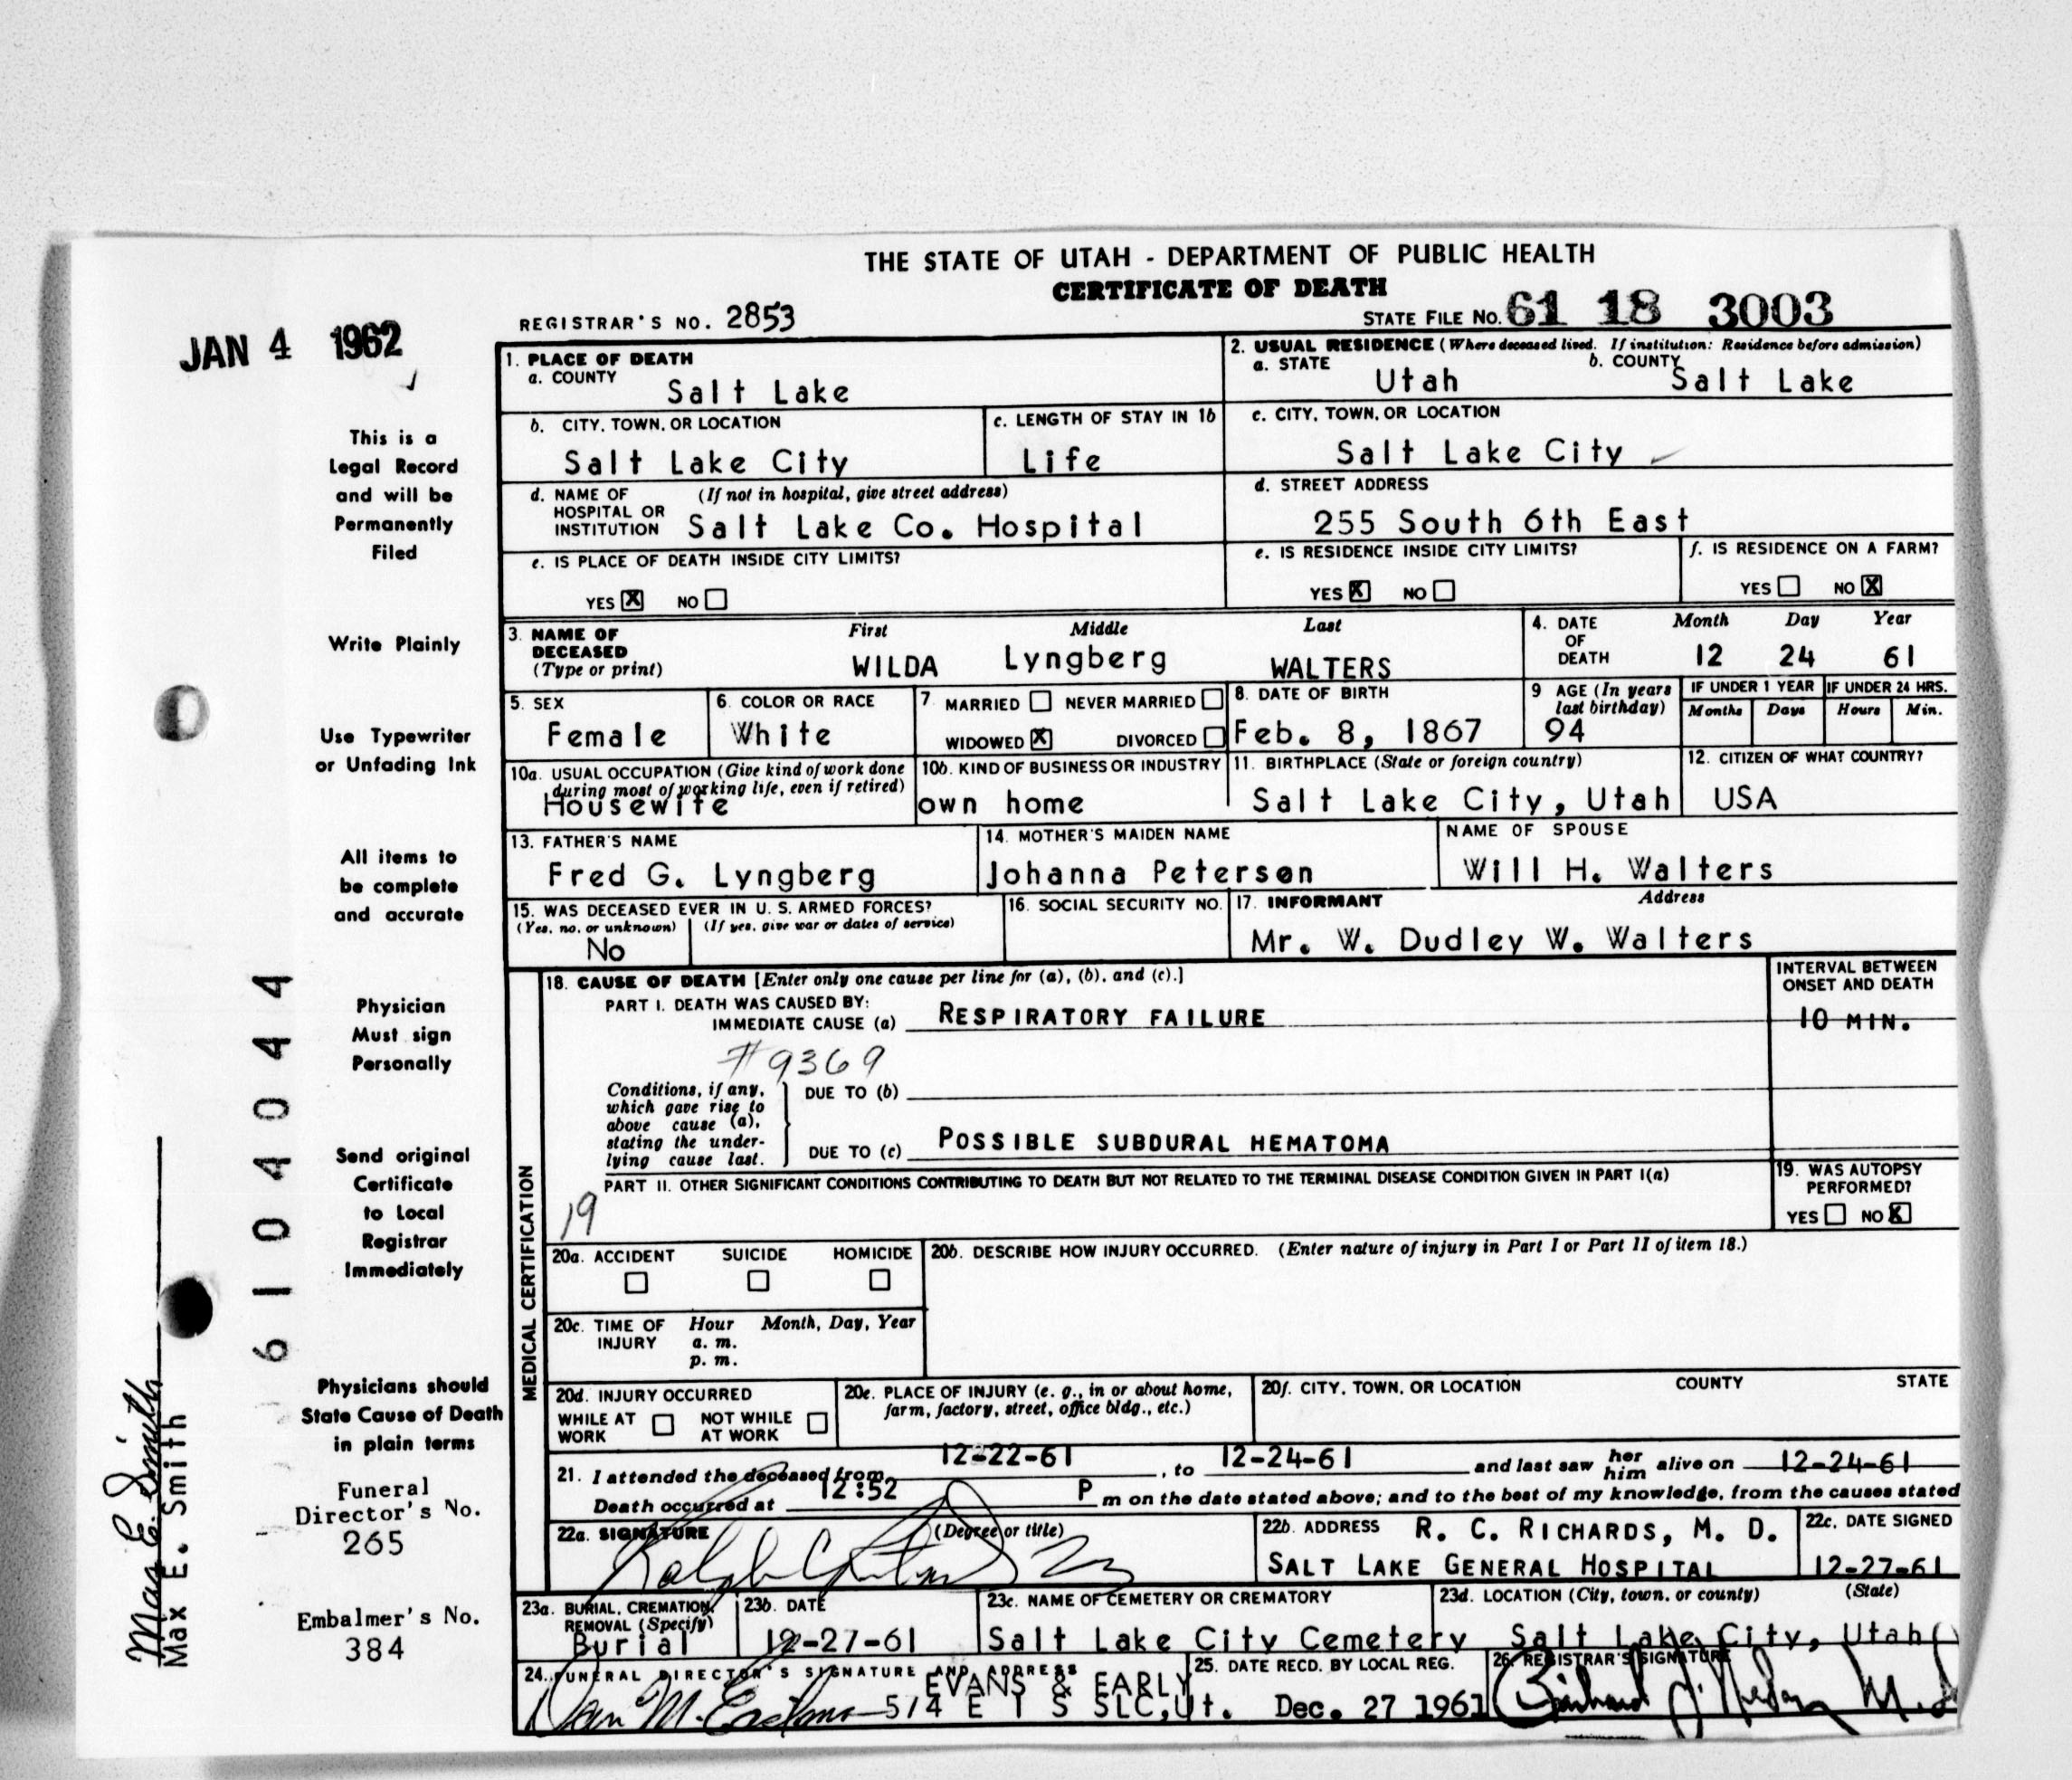 THE STATE OF UTAH - DEPARTMENT OF PUBLIC HEALTH
CERTIFICATE OF DEATH
REGISTRAR'S NO. 2853
STATE FILE NO. 61 18 3003
JAN 4 1962
This is a
Legal Record
and will be
Permanently
Filed
Write Plainly
Use Typewriter
or Unfading Ink
All items to
be complete
and accurate
Physician
Must sign
Personally
Send original
Certificate
to Local
Registrar
Immediately
Physicians should
State Cause of Death
in plain terms
Funeral
Director's No.
265
Embalmer's No.
384
6104044
Max E. Smith
Max E. Smith
1. PLACE OF DEATH
a. COUNTY Salt Lake
2. USUAL RESIDENCE (Where deceased lived. If institution: Residence before admission)
a. STATE Utah b. COUNTY Salt Lake
b. CITY, TOWN, OR LOCATION Salt Lake City
c. LENGTH OF STAY IN 1b Life
c. CITY, TOWN, OR LOCATION Salt Lake City
d. NAME OF HOSPITAL OR INSTITUTION (If not in hospital, give street address) Salt Lake Co. Hospital
d. STREET ADDRESS 255 South 6th East
e. IS PLACE OF DEATH INSIDE CITY LIMITS?
YES X NO
e. IS RESIDENCE INSIDE CITY LIMITS?
YES X NO
f. IS RESIDENCE ON A FARM?
YES NO X
3. NAME OF DECEASED (Type or print)
First Middle Last
WILDA Lyngberg WALTERS
4. DATE OF DEATH
Month Day Year
12 24 61
5. SEX Female
6. COLOR OR RACE White
7. MARRIED NEVER MARRIED
WIDOWED X DIVORCED
8. DATE OF BIRTH Feb. 8, 1867
9 AGE (In years last birthday) 94
IF UNDER 1 YEAR Months Days
IF UNDER 24 HRS. Hours Min.
10a. USUAL OCCUPATION (Give kind of work done during most of working life, even if retired) Housewife
10b. KIND OF BUSINESS OR INDUSTRY own home
11. BIRTHPLACE (State or foreign country) Salt Lake City, Utah
12. CITIZEN OF WHAT COUNTRY? USA
13. FATHER'S NAME Fred G. Lyngberg
14. MOTHER'S MAIDEN NAME Johanna Peterson
NAME OF SPOUSE Will H. Walters
15. WAS DECEASED EVER IN U. S. ARMED FORCES?
(Yes, no. or unknown) (If yes, give war or dates of service)
No
16. SOCIAL SECURITY NO.
17. INFORMANT Address
Mr. W. Dudley W. Walters
MEDICAL CERTIFICATION
18. CAUSE OF DEATH [Enter only one cause per line for (a), (b), and (c).]
INTERVAL BETWEEN ONSET AND DEATH
PART I. DEATH WAS CAUSED BY:
IMMEDIATE CAUSE (a) RESPIRATORY FAILURE 10 MIN.
#9369
Conditions, if any, which gave rise to above cause (a), stating the underlying cause last.
DUE TO (b)
DUE TO (c) POSSIBLE SUBDURAL HEMATOMA
PART II. OTHER SIGNIFICANT CONDITIONS CONTRIBUTING TO DEATH BUT NOT RELATED TO THE TERMINAL DISEASE CONDITION GIVEN IN PART I(a)
19
19. WAS AUTOPSY PERFORMED?
YES NO X
20a. ACCIDENT SUICIDE HOMICIDE
20b. DESCRIBE HOW INJURY OCCURRED. (Enter nature of injury in Part I or Part II of item 18.)
20c. TIME OF INJURY Hour Month, Day, Year
a. m.
p. m.
20d. INJURY OCCURRED
WHILE AT WORK NOT WHILE AT WORK
20e. PLACE OF INJURY (e. g., in or about home, farm, factory, street, office bldg., etc.)
20f. CITY, TOWN, OR LOCATION COUNTY STATE
21. I attended the deceased from 12-22-61, to 12-24-61 and last saw her him alive on 12-24-61
Death occurred at 12:52 P m on the date stated above; and to the best of my knowledge, from the causes stated
22a. SIGNATURE (Degree or title)
22b. ADDRESS R. C. RICHARDS, M. D.
SALT LAKE GENERAL HOSPITAL
22c. DATE SIGNED
12-27-61
23a. BURIAL, CREMATION, REMOVAL (Specify) Burial
23b. DATE 12-27-61
23c. NAME OF CEMETERY OR CREMATORY Salt Lake City Cemetery
23d. LOCATION (City, town, or county) (State) Salt Lake City, Utah
24. FUNERAL DIRECTOR'S SIGNATURE AND ADDRESS
EVANS & EARLY
574 E 1 S SLC, Ut.
25. DATE RECD. BY LOCAL REG. Dec. 27 1961
26. REGISTRAR'S SIGNATURE